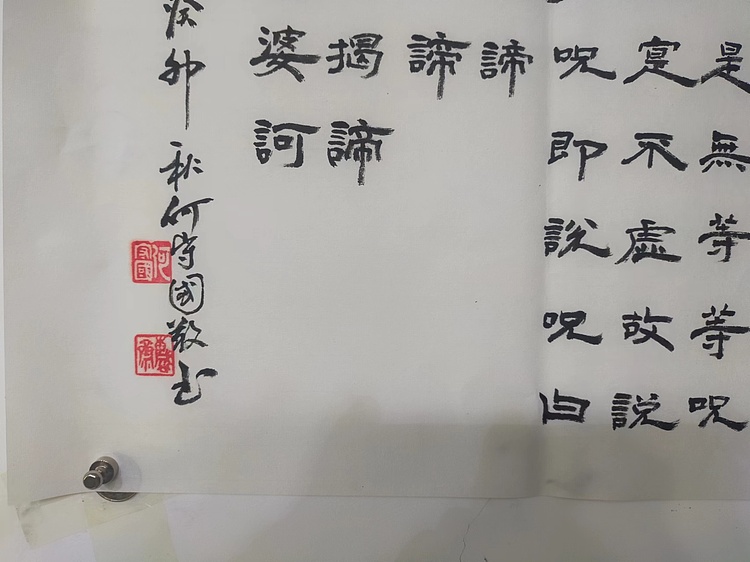 是無等等呪
寔不虛故說
呪即說呪曰
諦
諦
揭諦
婆訶
癸卯秋何守國敬書